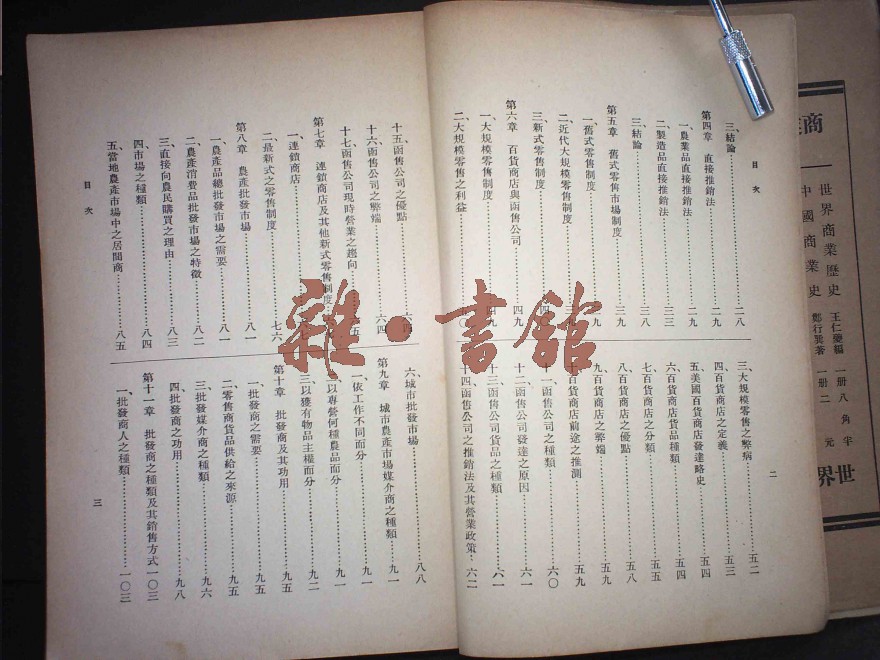 目次
三、結論……二八
第四章　直接推銷法……二九
一、農業品直接推銷法……二九
二、製造品直接推銷法……三三
三、結論……三九
第五章　舊式零售市場制度……三九
一、舊式零售制度
二、近代大規模零售制度
三、新式零售制度
第六章　百貨商店與函售公司……四九
一、大規模零售制度……四九
二、大規模零售之利益
三、大規模零售之弊病……五二
四、百貨商店之定義……五三
五、美國百貨商店發達略史……五四
六、百貨商店貨品種類……五四
七、百貨商店之分類……五五
八、百貨商店之優點……五八
九、百貨商店之弊端……五九
十、百貨商店前途之推測……五九
十一、函售公司之種類……六〇
十二、函售公司發達之原因……六一
十三、函售公司貨品之種類……六一
十四、函售公司之推銷法及其營業政策……六二
二
十五、函售公司之優點
十六、函售公司之弊端……六四
十七、函售公司現時營業之趨向
第七章　連鎖商店及其他新式零售制度
一、連鎖商店
二、最新式之零售制度……七六
第八章　農產批發市場……八一
一、農產品總批發市場之需要……八一
二、農產消費品批發市場之特徵……八二
三、直接向農民購買之理由……八三
四、市場之種類……八四
五、當地農產市場中之居間商……八五
目次
六、城市批發市場……八八
第九章　城市農產市場媒介商之種類……九一
一、依工作不同而分……九一
二、以專營何種農品而分……九一
三、以獲有物品主權而分……九二
第十章　批發商及其功用……九五
一、批發商之需要……九五
二、零售商貨品供給之來源……九五
三、批發媒介商之種類……九六
四、批發商之功用……九八
第十一章　批發商之種類及其銷售方式……一〇三
一、批發商人之種類……一〇三
三
商
世界商業歷史　王仁夔編　一冊八角半
中國商業史　鄭行巽著　一冊二元
世界
雜·書館